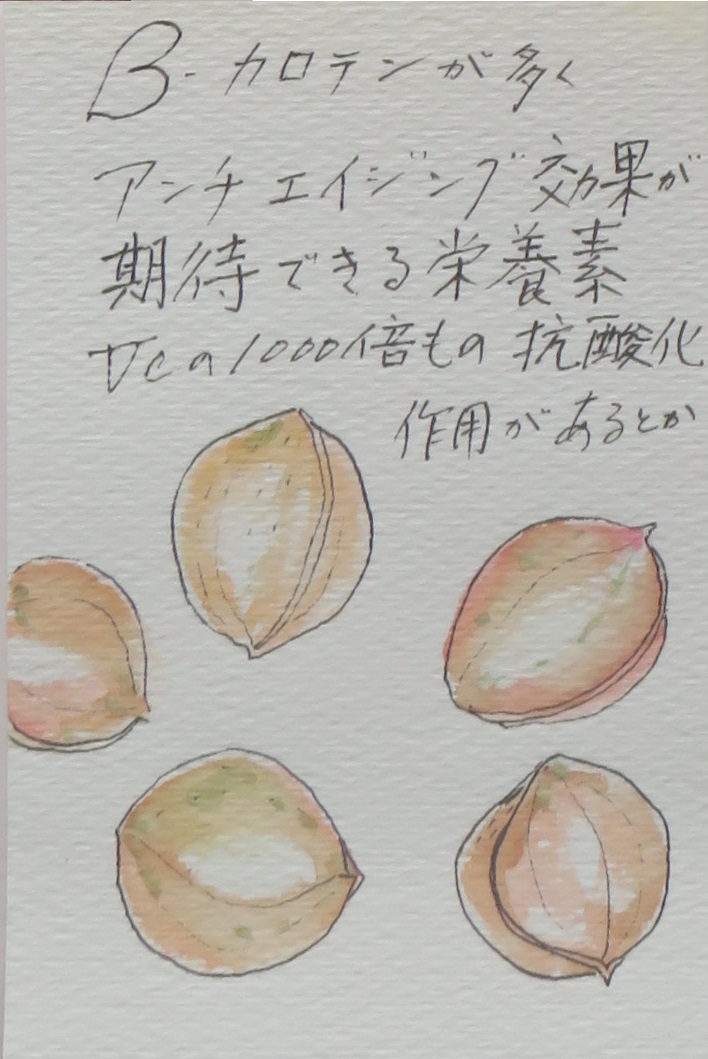 β-カロテンが多く
アンチエイジング効果が
期待できる栄養素
VCの1000倍もの抗酸化
作用があるとか